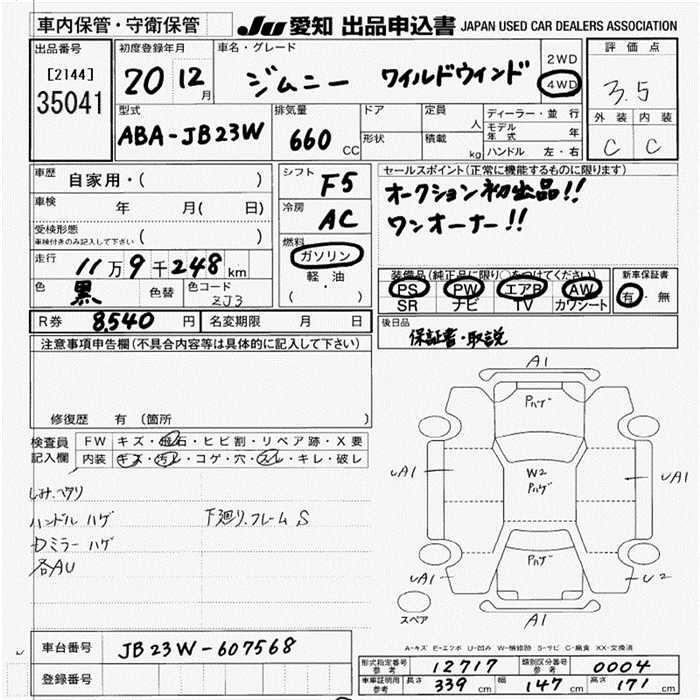 車内保管・守衛保管
JU 愛知 出品申込書 JAPAN USED CAR DEALERS ASSOCIATION
出品番号
[2144]
35041
初度登録年月
20 12月
車名・グレード
ジムニー ワイルドウインド
2WD
4WD
評価点
3.5
外装 内装
C C
型式
ABA-JB23W
排気量
660 CC
ドア
形状
定員 人
積載 kg
ディーラー・並行
モデル年式 年
ハンドル 左・右
車歴 自家用・( )
車検 年 月( 日)
受検形態
車検付きのみ記入して下さい ( )
走行 11万9千248km
色 黒 色替 色コード ZJ3
シフト F5
冷房 AC
燃料
ガソリン
軽・油
( )
セールスポイント(正常に機能するものに限ります)
オークション初出品!!
ワンオーナー!!
装備品(純正品に限り○をつけてください)
PS PW エアB AW
SR ナビ TV カワシート
新車保証書
有・無
R券 8,540 円 名変期限 月 日
後日品
保証書・取説
注意事項申告欄(不具合内容等は具体的に記入して下さい)
修復歴 有(箇所 )
検査員記入欄
FW キズ・飛石・ヒビ割・リペア跡・X要
内装 キズ・汚レ・コゲ・穴・スレ・キレ・破レ
しみ.ヘタリ
ハンドル ハゲ 下廻り.フレームS
Dミラー ハゲ
各AU
A1
Pハゲ
W2
Pハゲ
Pハゲ
UA1
UA1
UA1
U2
A1
スペア
A-キズ E-エクボ U-凹み W-補修跡 S-サビ C-腐食 XX-交換済
車台番号 JB23W-607568
登録番号
形式指定番号 参考 12717 類別区分番号 参考 0004
車庫証明用 参考 長さ 339 cm 幅 147 cm 高さ 171 cm